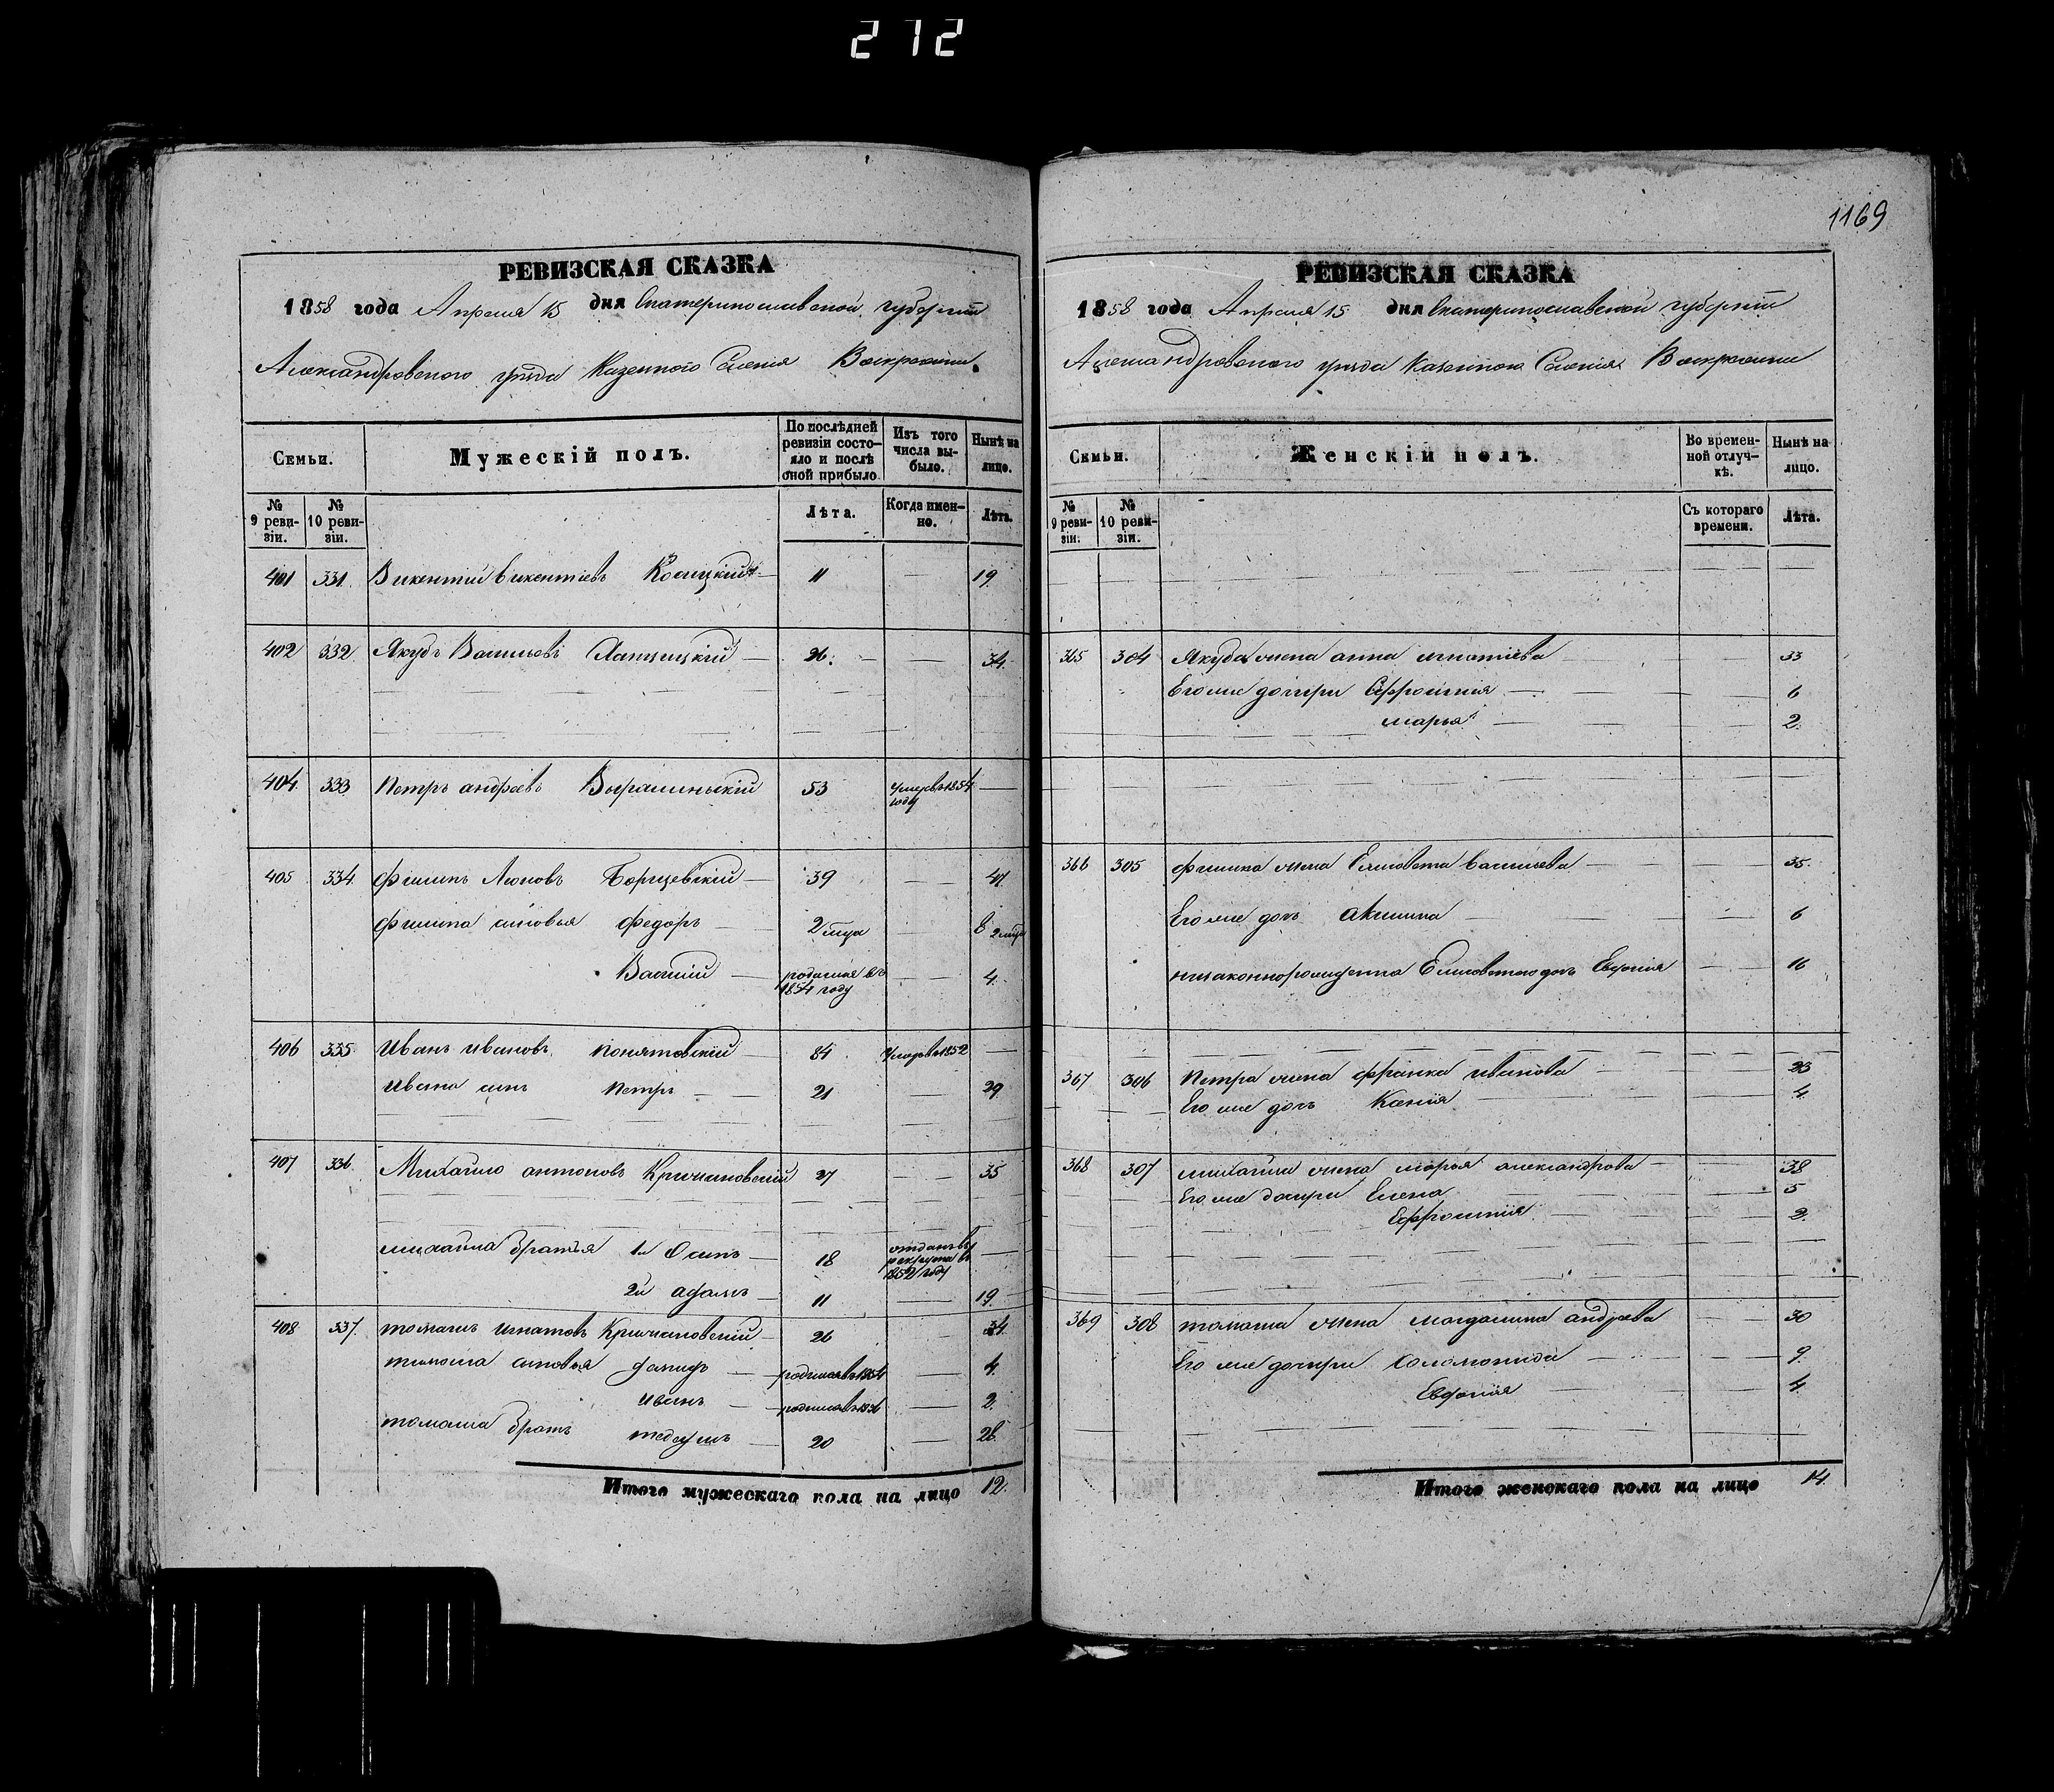 272
1169
РЕВИЗСКАЯ СКАЗКА
1858 года Апреля 15 дня Екатеринославской губерніи
Александровского уѣзда Казенного Селенія
Семьи.
Мужескій полъ.
По послѣдней ревизіи состояло и послѣ оной прибыло.
Изъ того числа выбыло.
Нынѣ на лицо.
№ 9 ревизіи.
№ 10 ревизіи.
Лѣта.
Когда именно.
Лѣта.
401 331. Викентій Викентіевъ 11 — 19.
402 332. Якубъ Васильевъ 26. — 34.
404. 333. Петръ андреевъ 53 умеръ в 1854 году —
405 334. Филипъ Борщевскій — 39 — 47.
Филипа сыновья Федоръ — 2 мѣца — 8 2 мѣца
Василій — родился въ 1854 году — 4.
406 335. Иванъ ивановъ Понятовскій — 84 Умеръ в 1852 —
Ивана сынъ Петръ — 21 — 29.
407 336. Михайло антоновъ 27 — 35
михайла братья 1й Осипъ — 18 отданъ в рекруты в 1852 году —
2й адамъ — 11 — 19.
408 337. томашъ игнатовъ 26 — 34.
томаша сыновья родился в 1854 — 4.
иванъ — родился в 1856 — 2.
томаша братъ тадеушъ — 20 — 28.
Итого мужескаго пола на лицо 12.
РЕВИЗСКАЯ СКАЗКА
1858 года Апреля 15 дня Екатеринославской губерніи
Александровского уѣзда Казенного Селенія
Семьи.
Женскій полъ.
Во временной отлучкѣ.
Нынѣ на лицо.
№ 9 ревизіи.
№ 10 ревизіи.
Съ котораго времени.
Лѣта.
365 304 Якуба жена анна игнатіева — 33
Его же дочери Ефросинія — 6
марья — 2.
366 305 Филипа жена Елисовета Васильева — 35.
Его же дочь акилина — 6
незаконнорожденна Елисоветою дочь Евдокія — 16
367 306 Петра жена франка иванова — 23
Его же дочь Ксенія — 4
368 307 михайла жена марья александрова — 38
Его же дочери Елена — 5
Ефросинія — 2.
369 308 томаша жена магдалина андреева — 30
Его же дочери — 9.
Евдокія — 4.
Итого женскаго пола на лицо 14.